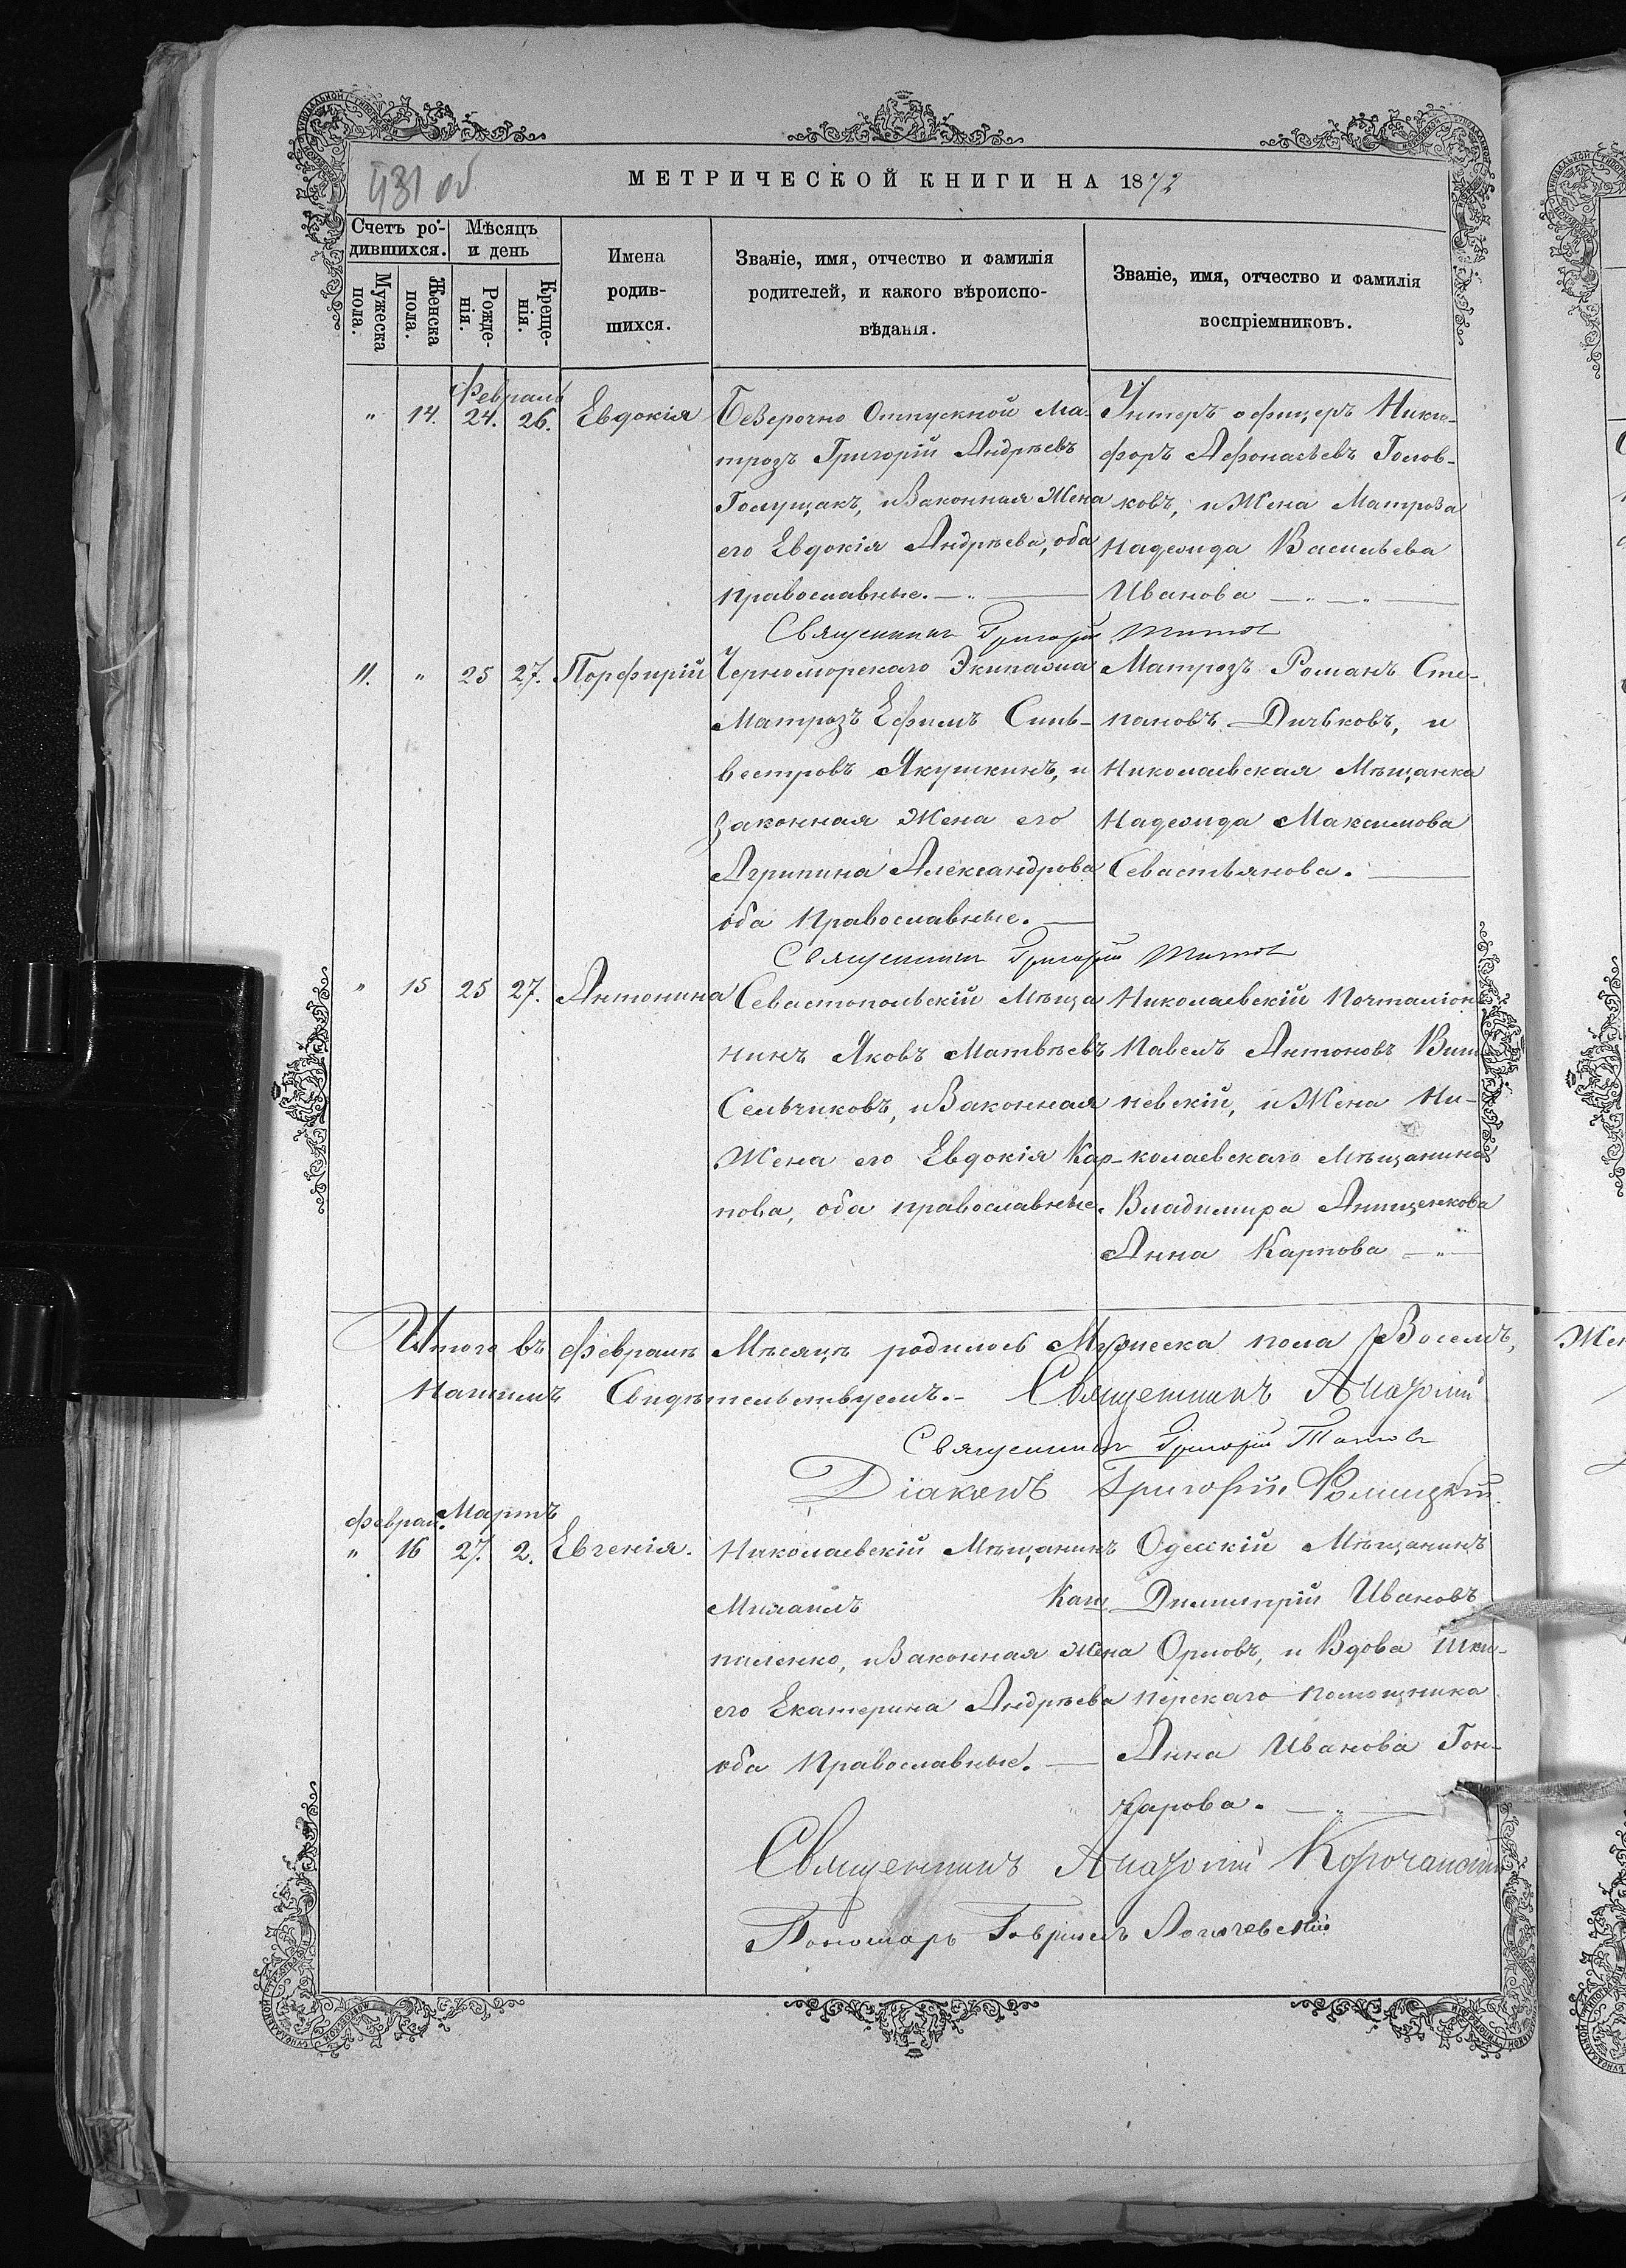 431 об
МЕТРИЧЕСКОЙ КНИГИ НА 1872
Счетъ ро-
дившихся.
Мѣсяцъ
и день
Мужеска
пола.
Женска
пола.
Рожде-
нія.
Креще-
нія.
Имена
родив-
шихся.
Званіе, имя, отчество и фамилія
родителей, и какого вѣроиспо-
вѣданія.
Званіе, имя, отчество и фамилія
воспріемниковъ.
Февраль
" 14. 24. 26. Евдокія
Безсрочно Отпускной Ма-
трозъ Григорій Андрѣевъ
Голущакъ, и Законная Жена
его Евдокія Андрѣева, оба
Православные.
Унтеръ офицеръ Ники-
форъ Афонасьевъ Голов-
ковъ, и Жена Матроза
Надежда Васильева
Иванова
Священникъ Григорій Титовъ
11. " 25 27. Порфирій
Черноморскаго Экипажа
Матрозъ Ефимъ Силь-
вестровъ Якушкинъ, и
Законная Жена его
Агрипина Александрова
оба Православные.
Матрозъ Романъ Сте-
пановъ Дичьковъ, и
Николаевская Мѣщанка
Надежда Максимова
Севастьянова.
Священникъ Григорій Титовъ
" 15 25 27. Антонина
Севастопольскій Мѣща
нинъ Яковъ Матвѣевъ
Сельчиковъ, и Законная
Жена его Евдокія Кар-
пова, оба православные.
Николаевскій Почталіонъ
Павелъ Антоновъ Виш
невскій, и Жена Ни-
колаевскаго Мѣщанина
Владимира Анищенкова
Анна Карпова
Итого въ Февралѣ Мѣсяцѣ родилось Мужеска пола Восемь,
Жен
Натимъ Свидѣтельствуемъ. Священникъ Анатолій
Священникъ Григорій Титовъ
Діаконъ Григорій
Феврал. Мартъ
" 16 27. 2. Евгенія.
Николаевскій Мѣщанинъ
Михаилъ Каш
пиленко, и Законная Жена
его Екатерина Андрѣева
оба Православные.
Одесскій Мѣщанинъ
Димитрій Ивановъ
Орловъ, и Вдова Шки-
перскаго помощника
Анна Иванова Гон-
чарова.
Священникъ Анатолій Корочанскій
Пономарь Гавріилъ